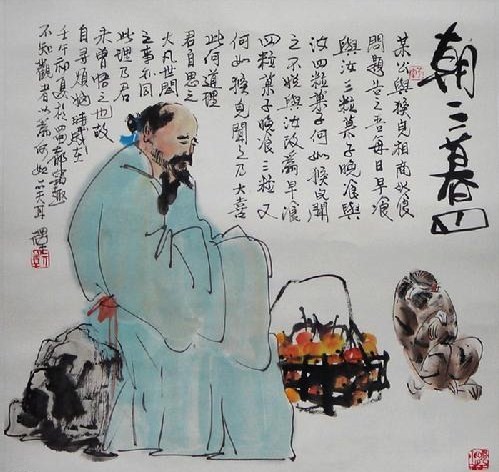 朝三暮四
某公與猴兒相商於食
問題公之吾每日早飡
與汝三粒菓子晚飡與
汝四粒菓子何如猴兒聞
之不悅與汝改為早飡
四粒菓子晚飡三粒又
何如猴兒聞之乃大喜
此何道理
君自思之
大凡世間
之事不同
此理乃君
未曾悟之也故
自尋煩惱
壬午初夏於
不知觀者以為何如一笑耳